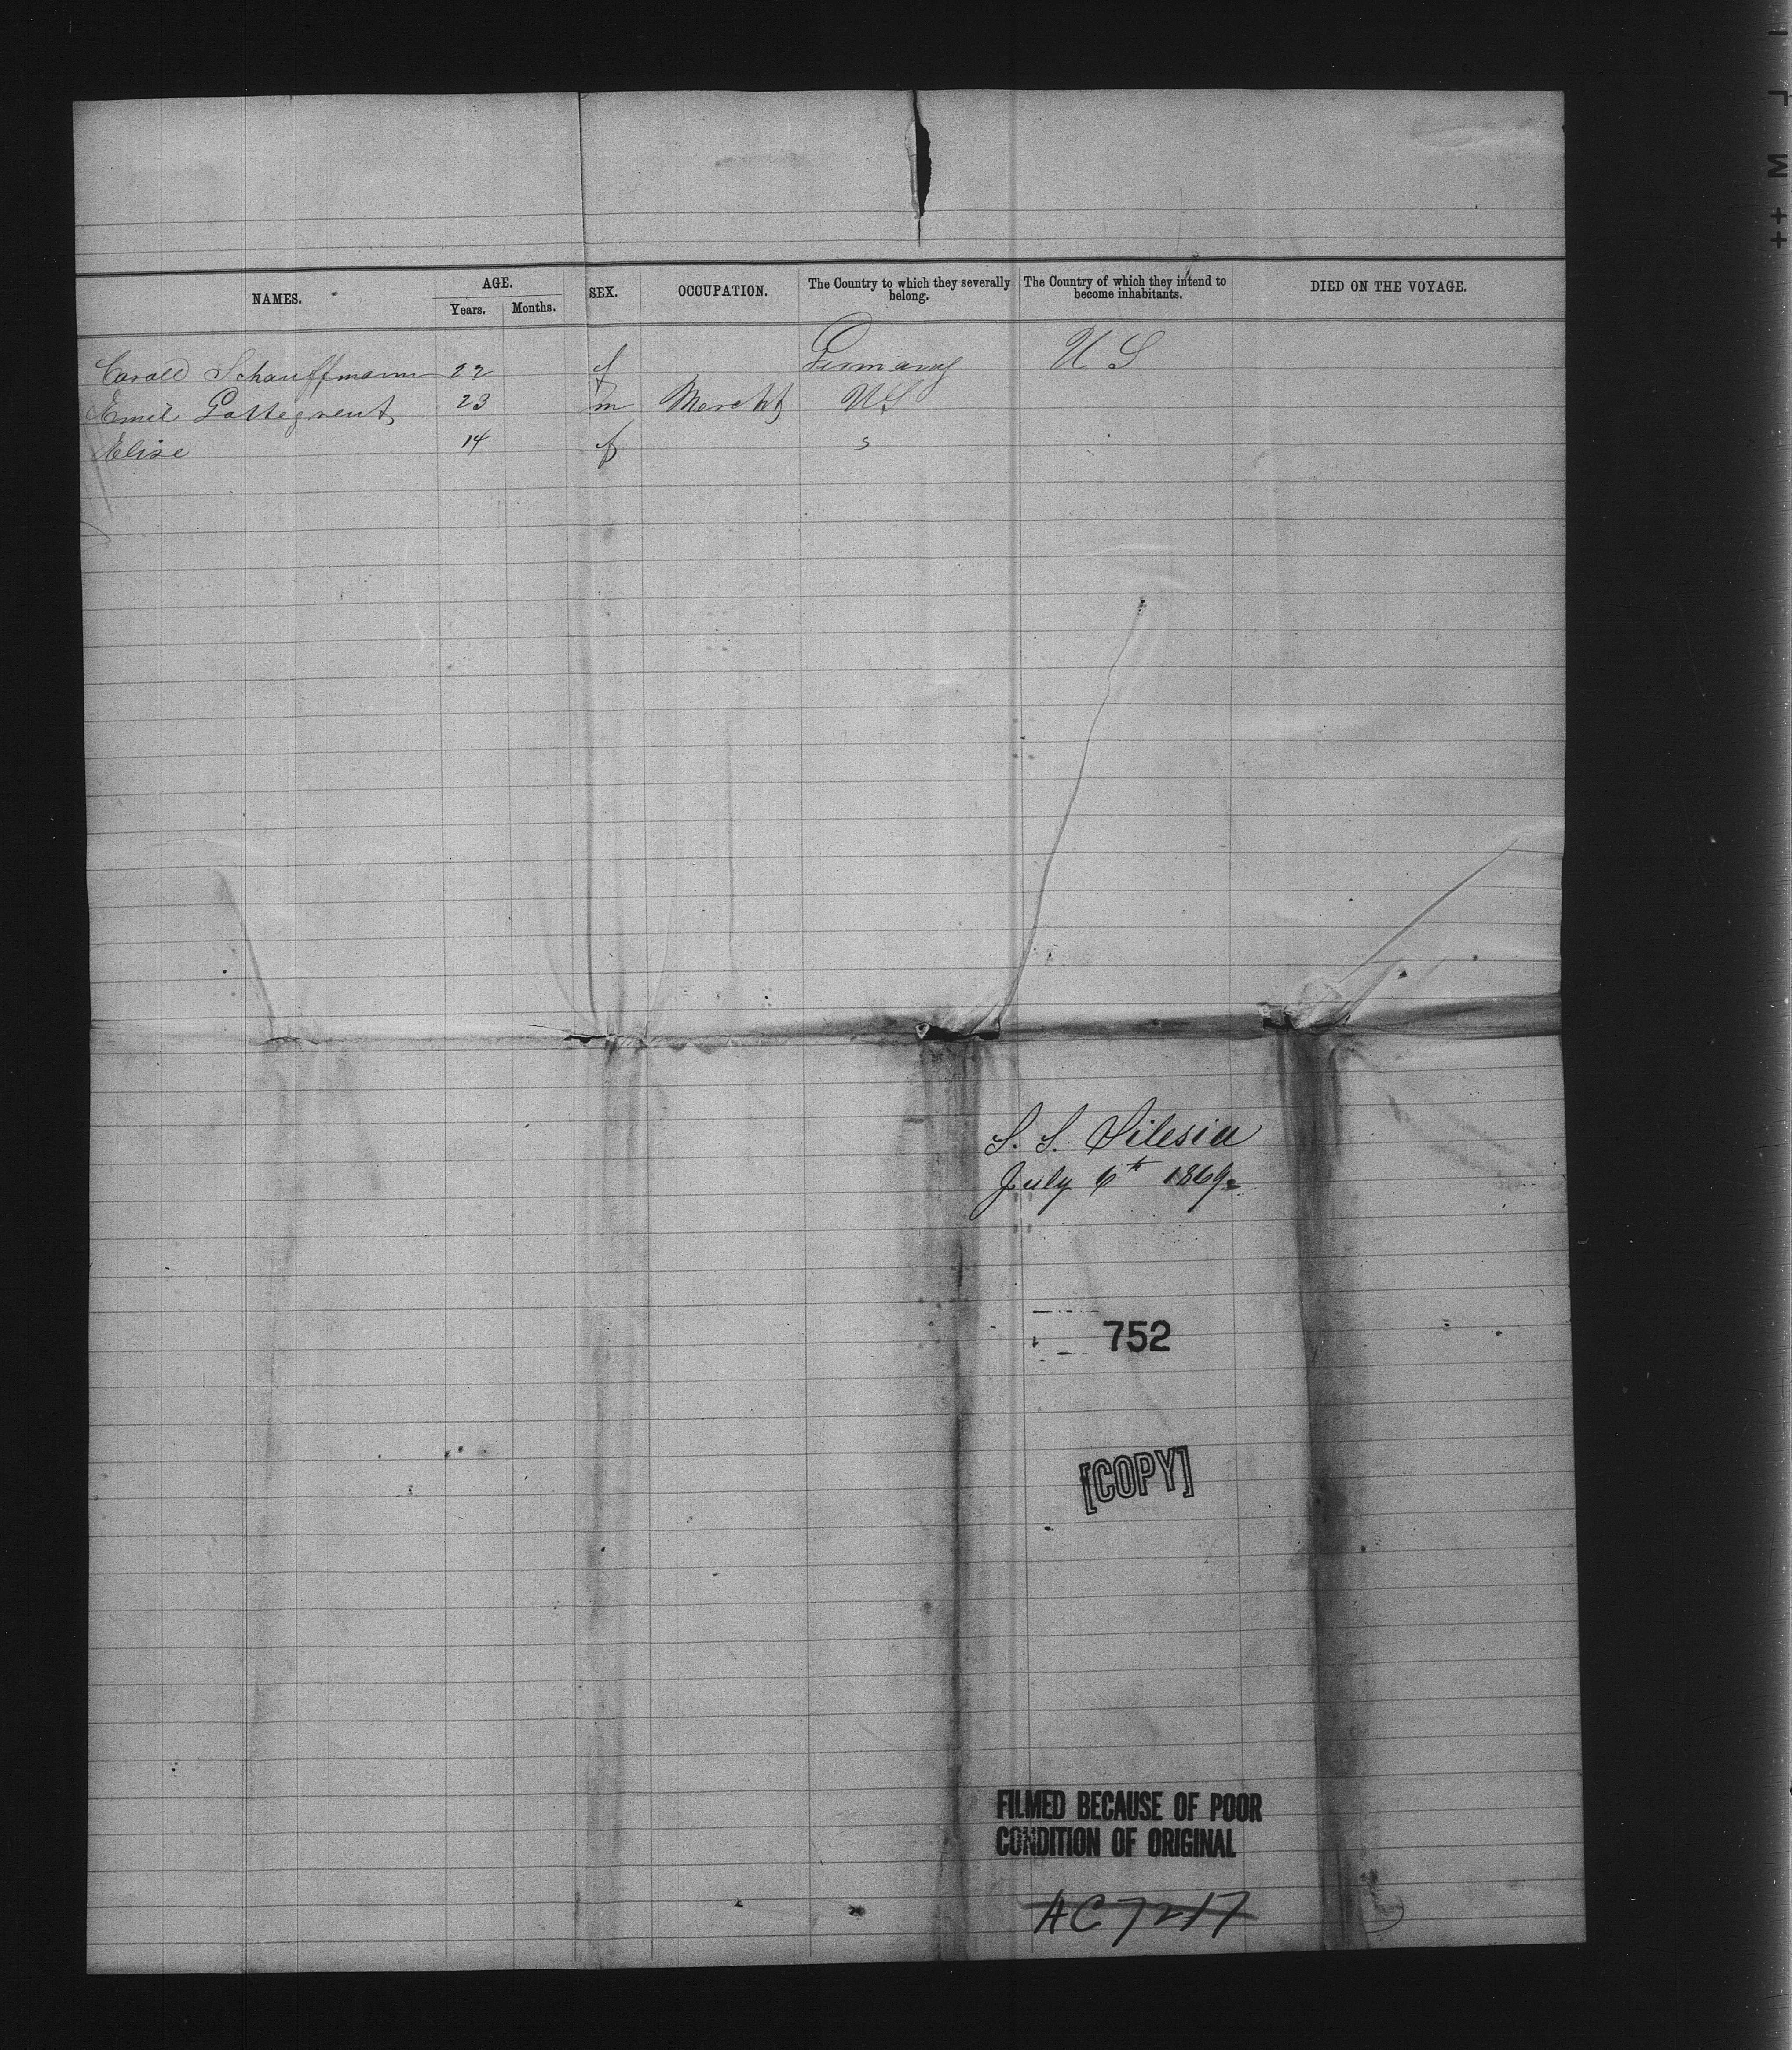 NAMES. AGE. SEX. OCCUPATION. The Country to which they severally belong. The Country of which they intend to become inhabitants. DIED ON THE VOYAGE.
Years. Months.
Schauffmann 22 f Germany U S
Emil 23 m Mercht U S
Elise 14 f
S. S. Silesia
July 6th 1869
752
[COPY]
FILMED BECAUSE OF POOR
CONDITION OF ORIGINAL
AC 7217